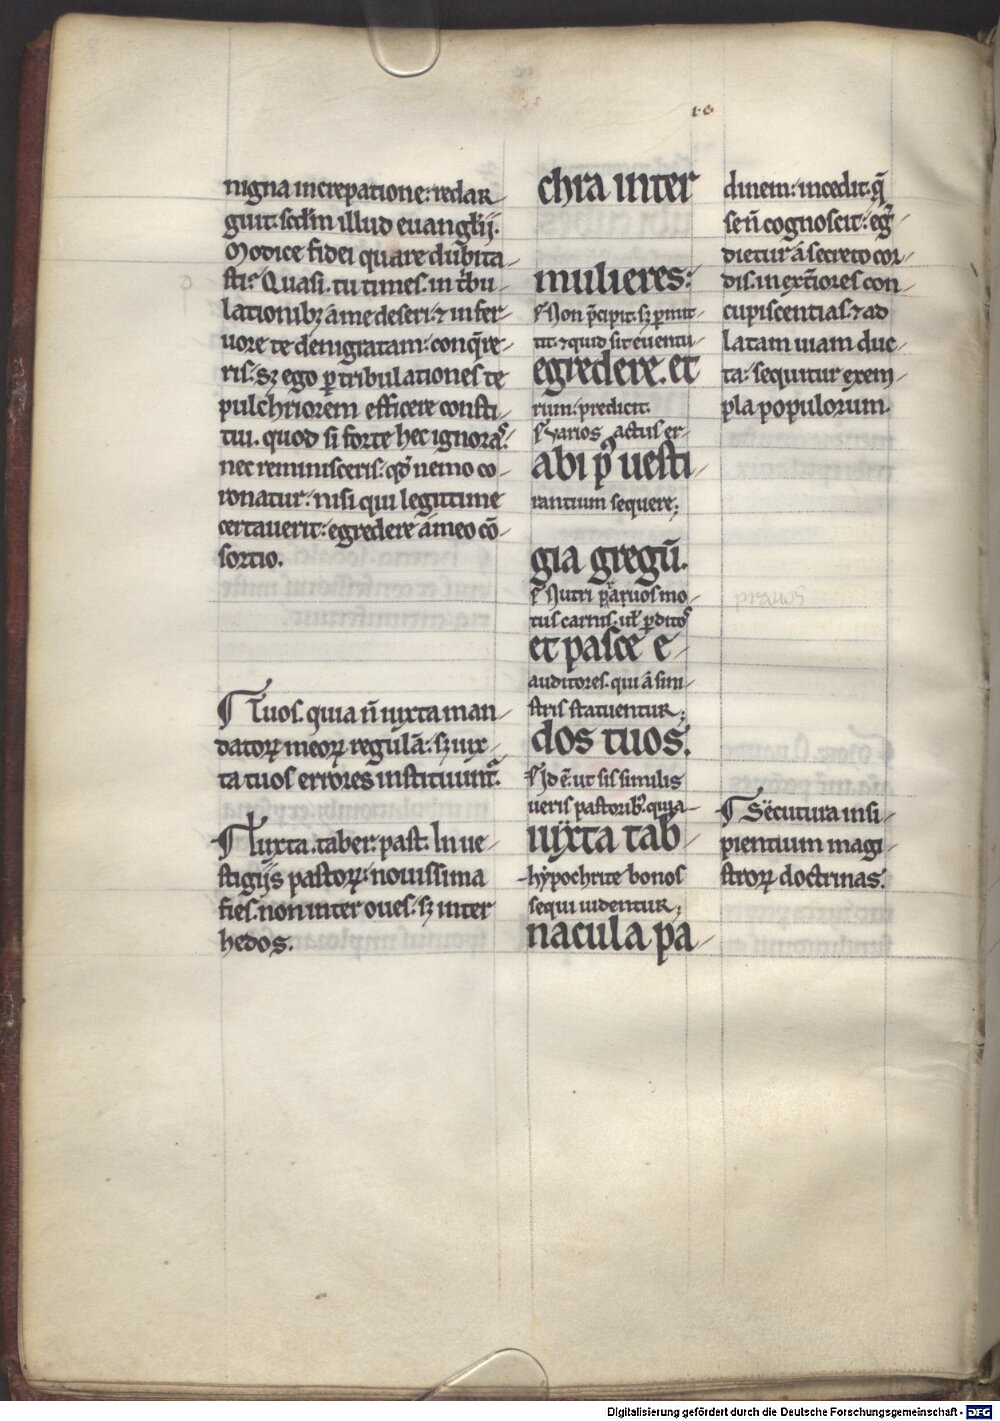 nigna increpatione: redar-
guit. scd̄m illud euangl̄ij.
Modice fidei quare dubita-
sti? Quasi. tu times. in t̄bu-
lationibꝫ a me deseri: ⁊ in fer-
uore te denigratam: conq̄re-
ris: sꝫ ego ꝑ tribulationes te
pulchriorem efficere consti-
tui. quod si forte hec ignoras:
nec reminisceris. qđ nemo co-
ronatur: nisi qui legittime
certauerit: egredere a meo cō-
sortio.
Tuos. quia n̄ iuxta man-
datorꝝ meorꝝ regulā: sꝫ iux-
ta tuos errores instituunt᷑.
Iuxta. taber. past. In ue-
stigijs pastorꝝ: nouissima
fies. non inter oues. sꝫ inter
hedos.
chra inter
mulieres:
Non p̄cipit. sꝫ ꝑmit-
tit. ⁊ quid sit euentu-
egredere. et
rum: predicit.
Varios actus er-
abi p᷒ uesti-
rantium sequere;
gia gregū.
Nutri paruos mo-
tus carnis. ul̄ ꝑditos
et pasce e-
auditores. qui a sini-
stris statuentur;
dos tuos.
Id ē. ut sis similis
ueris pastoribꝰ. quia
iuxta tab-
hypochrite bonos
sequi uidentur;
nacula pa-
i. c.
dinem: incedit. q̄
sen̄ cognoscit: eg̃-
dietur a secreto cor-
dis. in ext̄iores con-
cupiscentias. ⁊ ad
latam uiam duc-
ta: sequitur exem-
pla populorum.
Secutura insi-
pientium magi-
strorꝝ doctrinas.
Digitalisierung gefördert durch die Deutsche Forschungsgemeinschaft - DFG